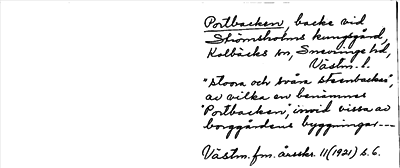 Portbacken, backe vid
Strömsholms kungsgård,
Kolbäcks sn, Snevringe hd,
Västm. l.
"stora och svåra stenbackar",
av vilka en benämnes
"Portbacken", invid vissa av
borggårdens byggningar---
Västm. fm. årsskr. 11 (1921) s. 6.